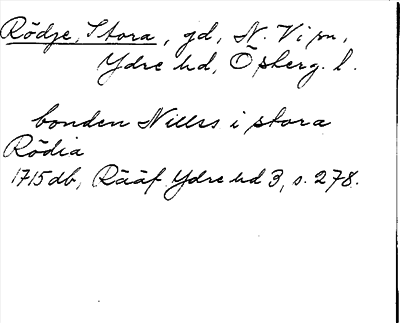 Rödje, Stora, gd, N. Vi sn,
Ydre hd, Österg.l.
bonden Nillss i stora
Rödia
1715 db, Rääf Ydre hd 3, s. 278.